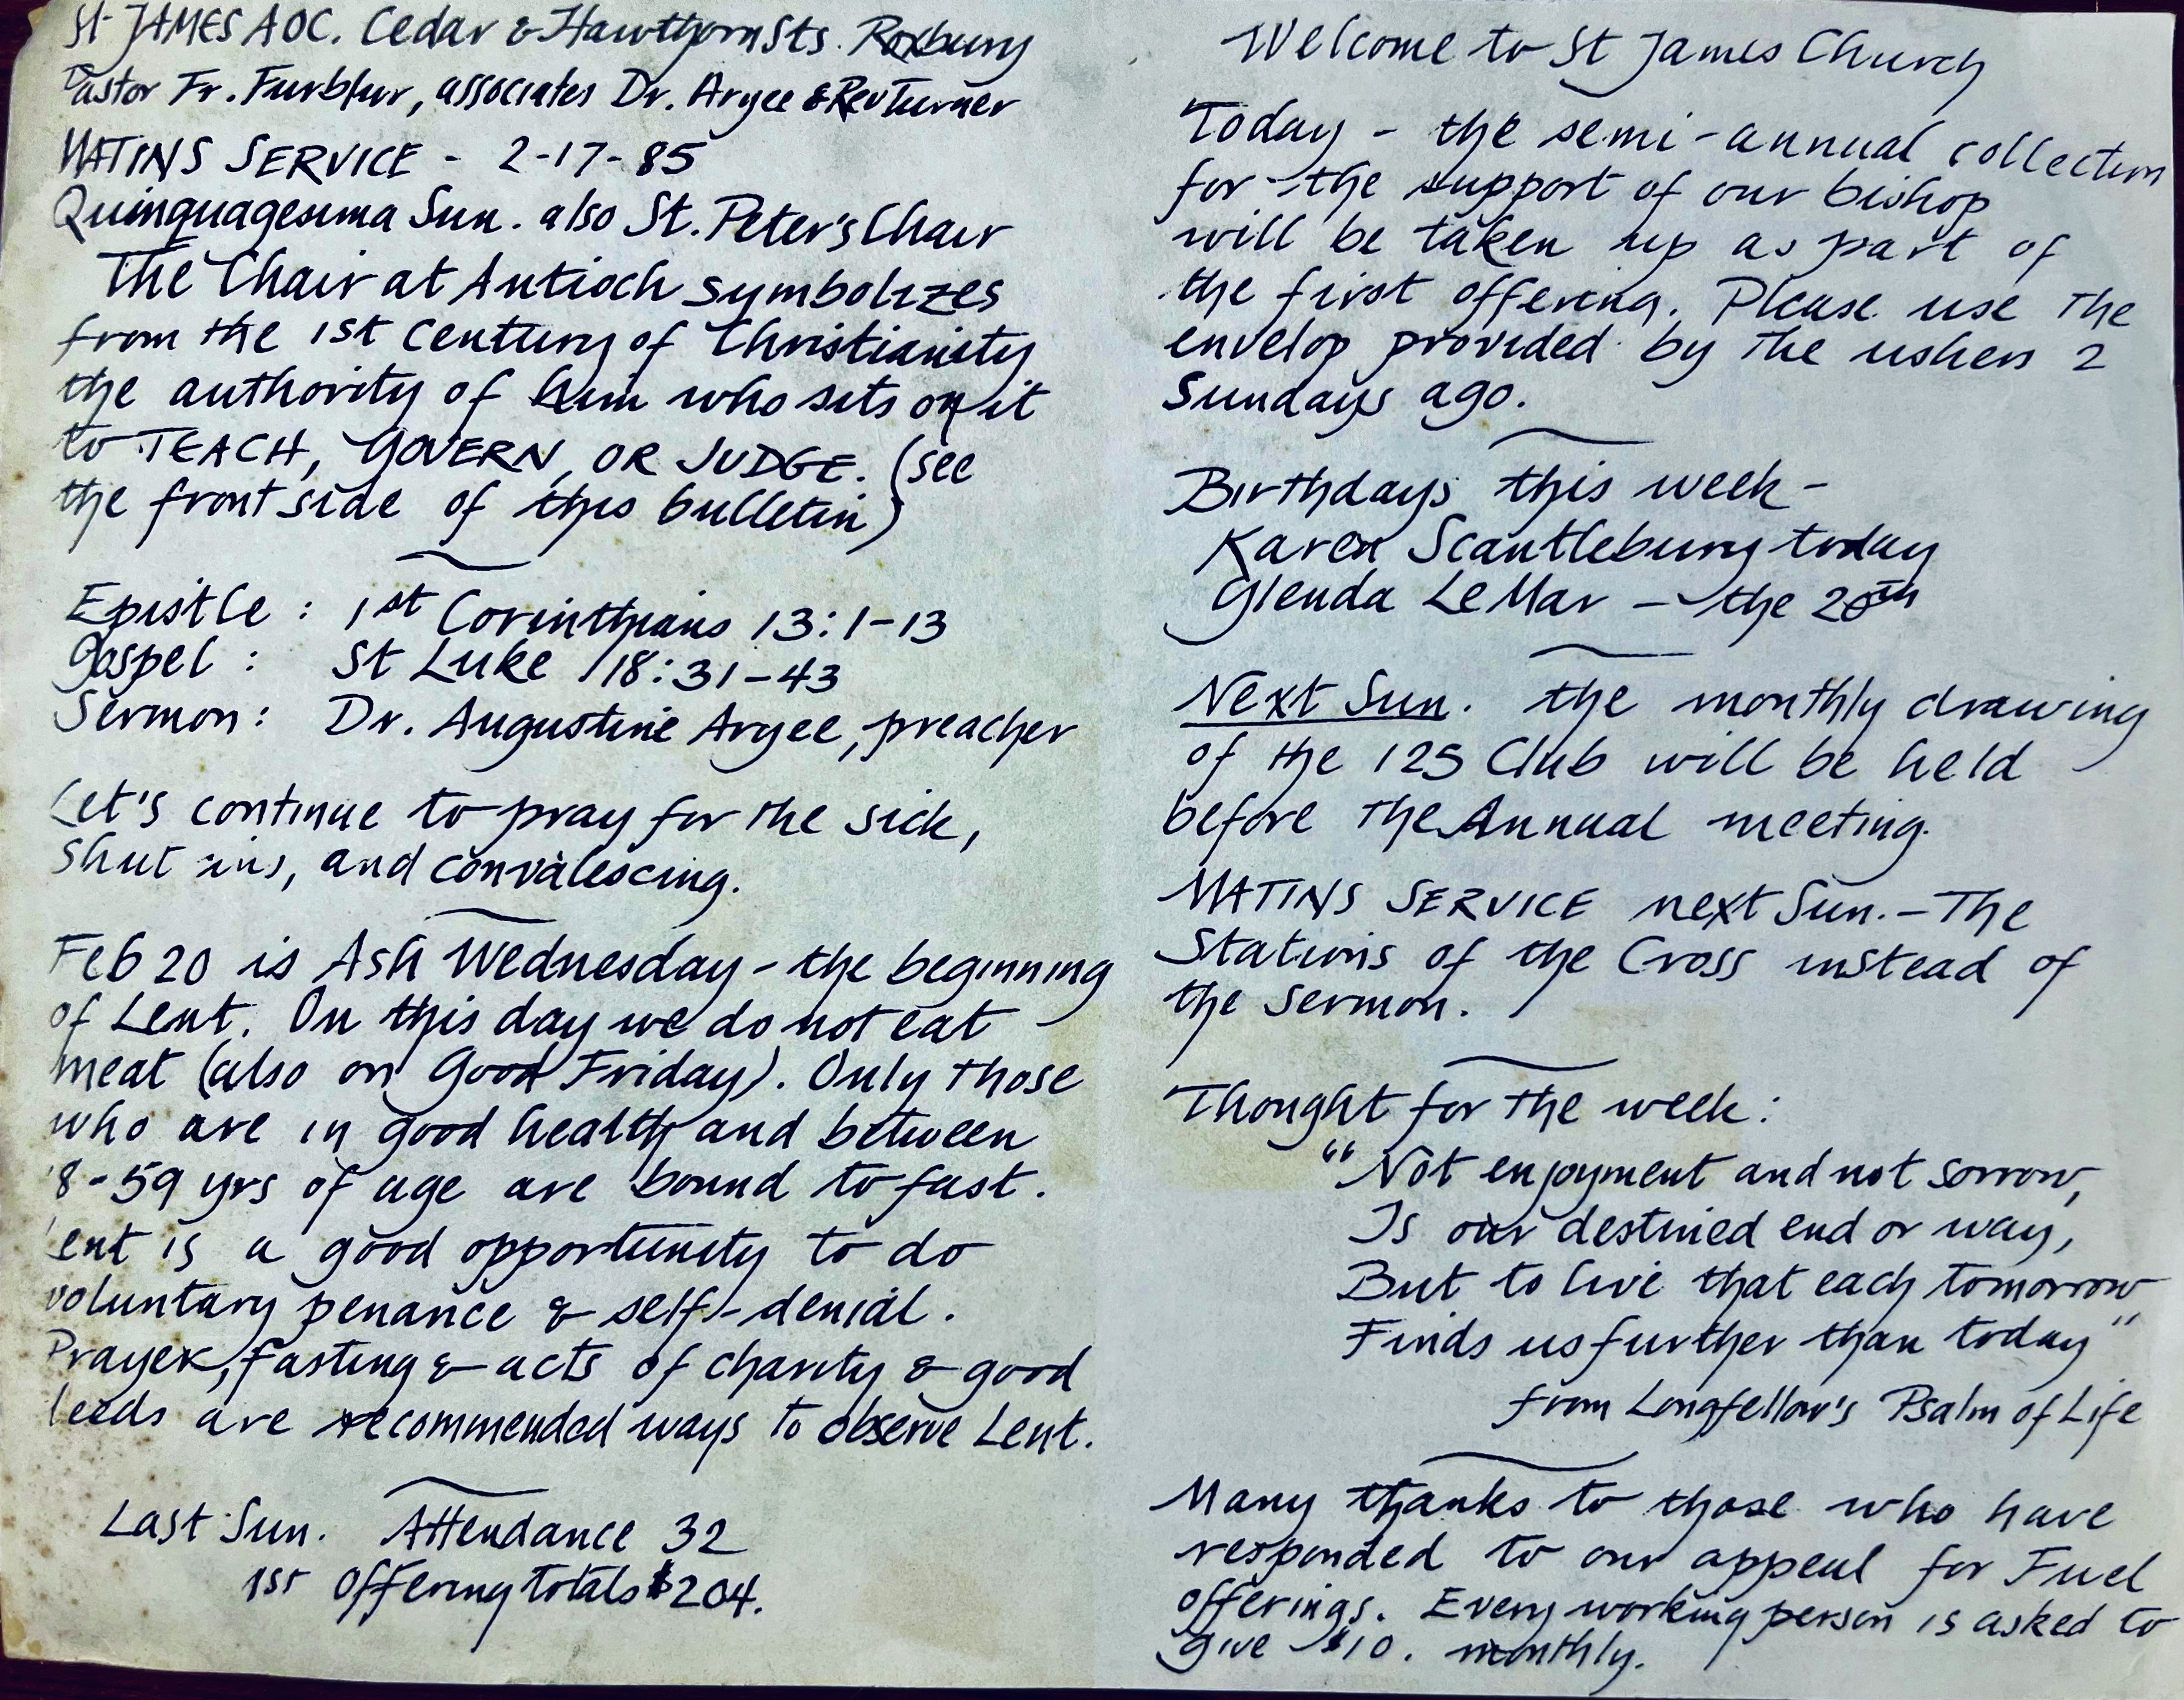 St JAMES AOC. Cedar & Hawthorn Sts. Roxbury
Pastor Fr. Furblur, associates Dr. Argee & Rev Turner
MATINS SERVICE - 2-17-85
Quinquagesima Sun. also St. Peter's Chair
The Chair at Antioch symbolizes
from the 1st century of Christianity
the authority of him who sits on it
to TEACH, GOVERN, OR JUDGE. (see
the front side of this bulletin)
Epistle : 1st Corinthians 13:1-13
Gospel : St Luke 18:31-43
Sermon: Dr. Augustine Argee, preacher
Let's continue to pray for the sick,
shut ins, and convalescing.
Feb 20 is Ash Wednesday - the beginning
of Lent. On this day we do not eat
meat (also on Good Friday). Only those
who are in good health and between
18-59 yrs of age are bound to fast.
Lent is a good opportunity to do
voluntary penance & self-denial.
Prayer, fasting & acts of charity & good
deeds are recommended ways to observe Lent.
Last Sun. Attendance 32
1st Offering totals $204.
Welcome to St James Church
Today - the semi-annual collection
for the support of our bishop
will be taken up as part of
the first offering. Please use the
envelop provided by the ushers 2
Sundays ago.
Birthdays this week -
Karen Scantlebury today
Glenda LeMar - the 20th
Next Sun. the monthly drawing
of the 125 Club will be held
before the Annual meeting.
MATINS SERVICE next Sun. - The
Stations of the Cross instead of
the sermon.
Thought for the week:
"Not enjoyment and not sorrow,
Is our destined end or way,
But to live that each tomorrow
Finds us further than today"
from Longfellow's Psalm of Life
Many thanks to those who have
responded to our appeal for Fuel
offerings. Every working person is asked to
give $10. monthly.